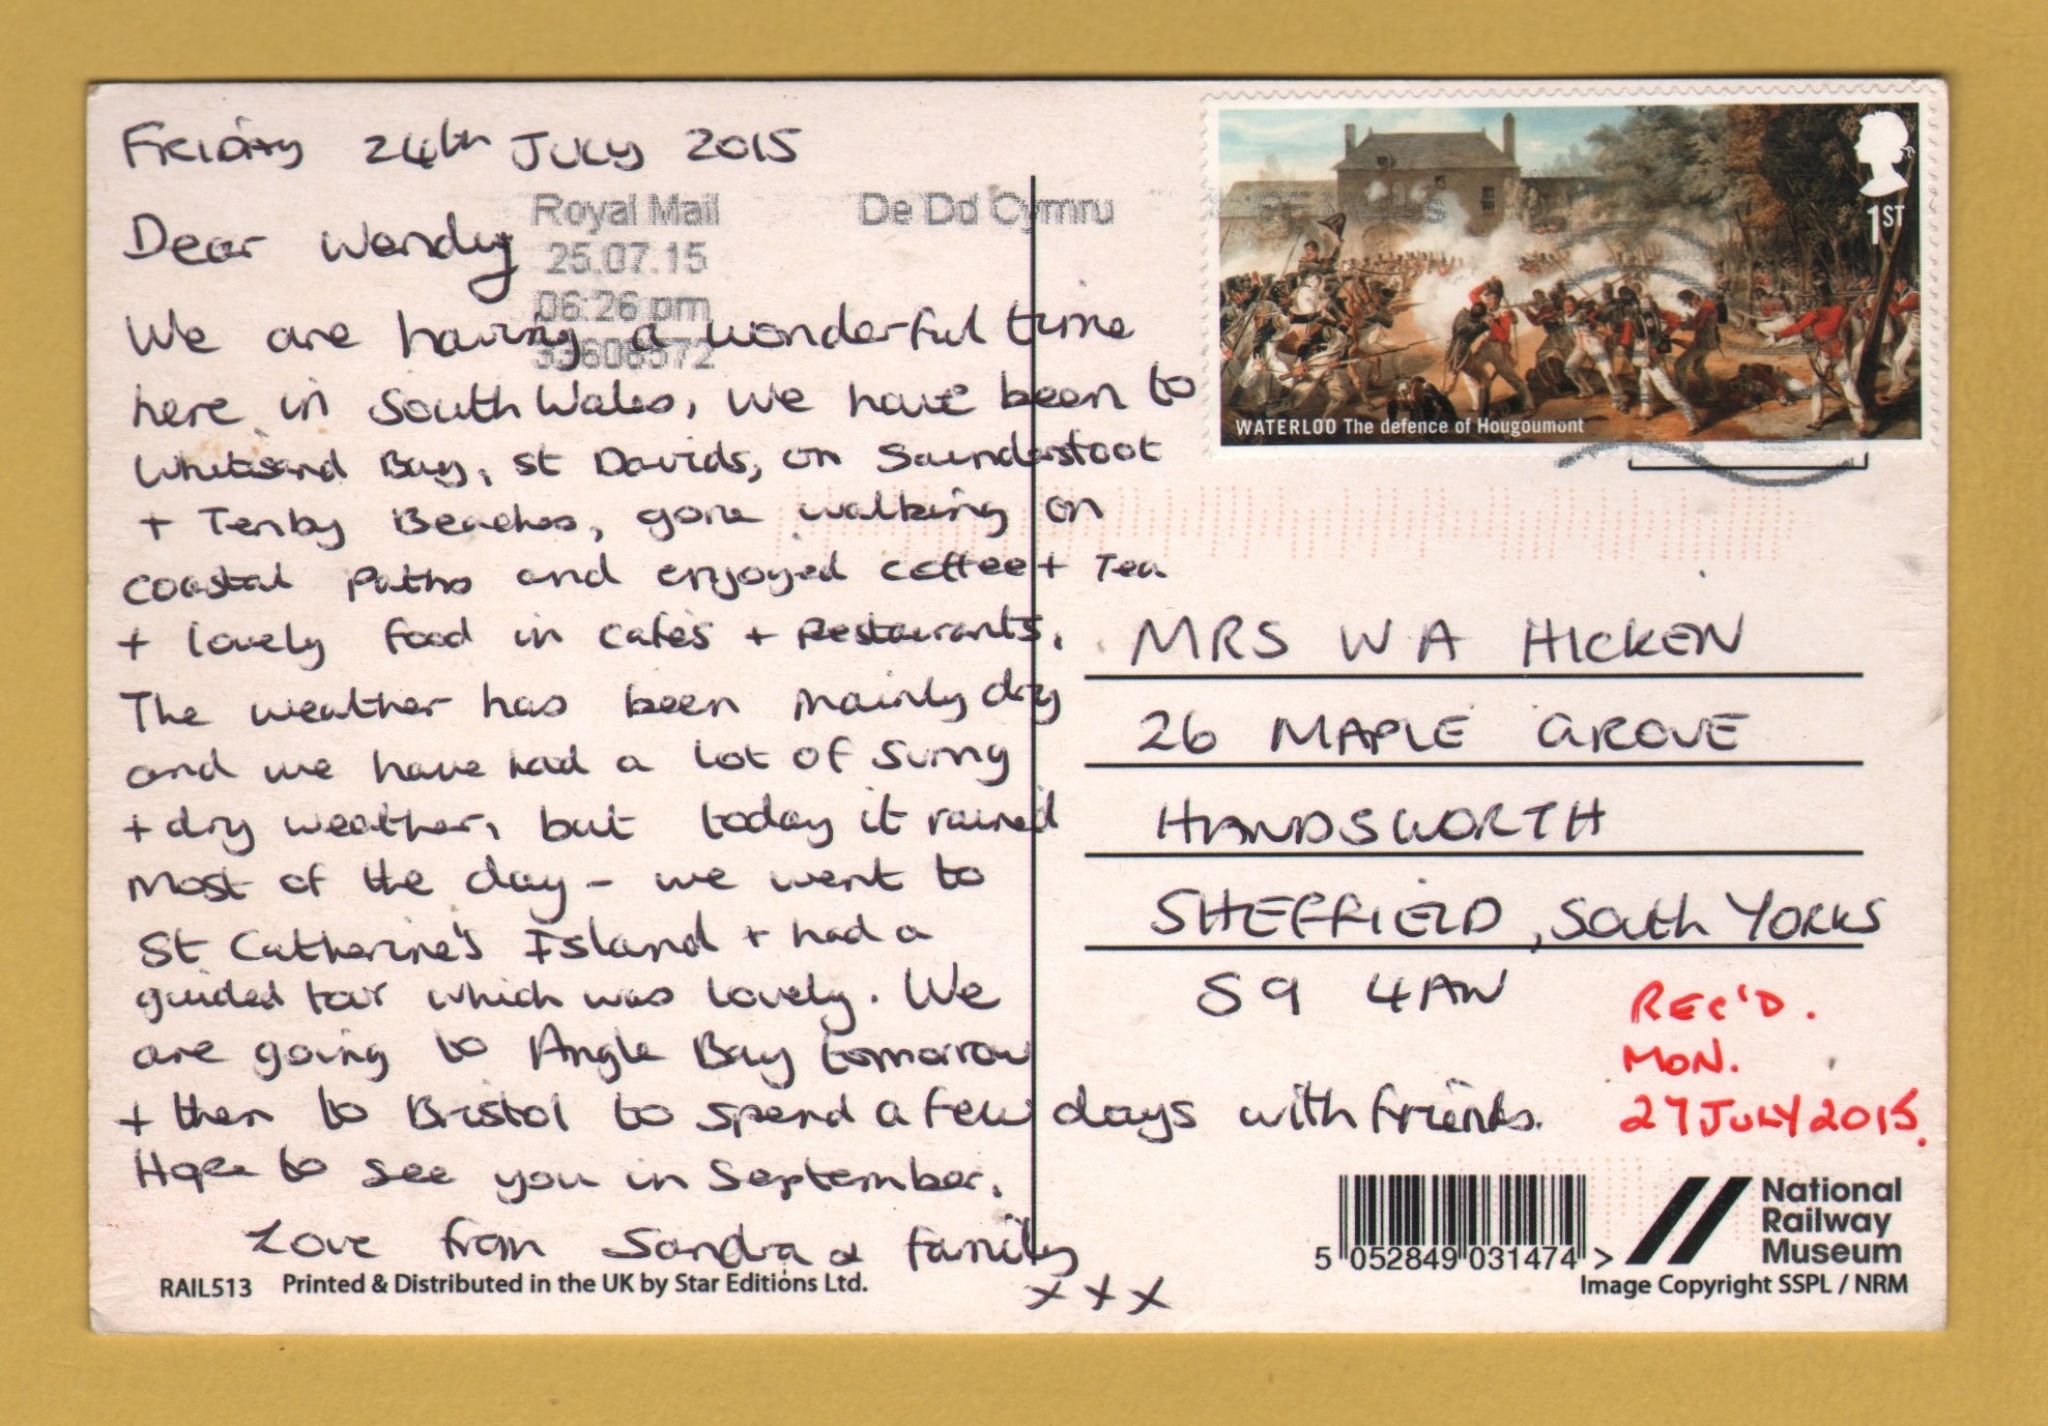 Friday 24th July 2015
Royal Mail
25.07.15
06:26 pm
De Dd Cymru
Dear Wendy
We are having a wonderful time
here in South Wales, we have been to
Whitesand Bay, St Davids, on Saundersfoot
+ Tenby Beaches, gone walking on
coastal paths and enjoyed coffee + Tea
+ lovely food in cafes + Restaurants.
The weather has been mainly dry
and we have had a lot of sunny
+ dry weather, but today it rained
most of the day - we went to
St Catherine's Island + had a
guided tour which was lovely. We
are going to Angle Bay tomorrow
+ then to Bristol to spend a few days with friends.
Hope to see you in September.
Love from Sandra & family
x x x
RAIL513 Printed & Distributed in the UK by Star Editions Ltd.
1ST
WATERLOO The defence of Hougoumont
MRS W A HICKEN
26 MAPLE GROVE
HANDSWORTH
SHEFFIELD, South YORKS
S9 4AW
REC'D.
MON.
27 JULY 2015.
5 052849 031474 >
National
Railway
Museum
Image Copyright SSPL / NRM